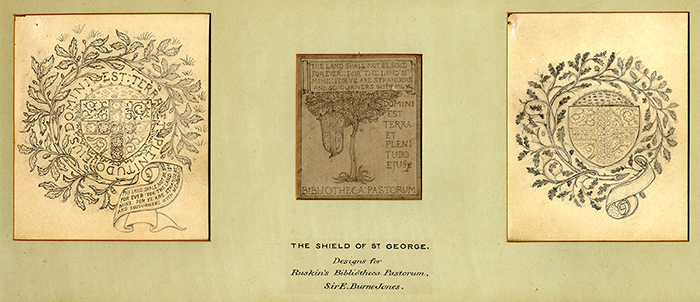 DOMINI EST: TERRA ET PLENITUDO EJUS
THE LAND SHALL
FOR EVER: FOR THE LAND
MINE: FOR YE ARE STRANGERS
AND SOJOURNERS WITH ME
THE LAND SHALL NOT BE SOLD
FOR EVER: FOR THE LAND IS
MINE: FOR YE ARE STRANGERS
AND SOJOURNERS WITH ME
DOMINI
EST
TERRA
ET
PLENI
TUDO
EJUS
BIBLIOTHECA: PASTORUM
THE SHIELD OF ST GEORGE.
Designs for
Ruskin's Bibliotheca Pastorum.
Sir E. Burne Jones.